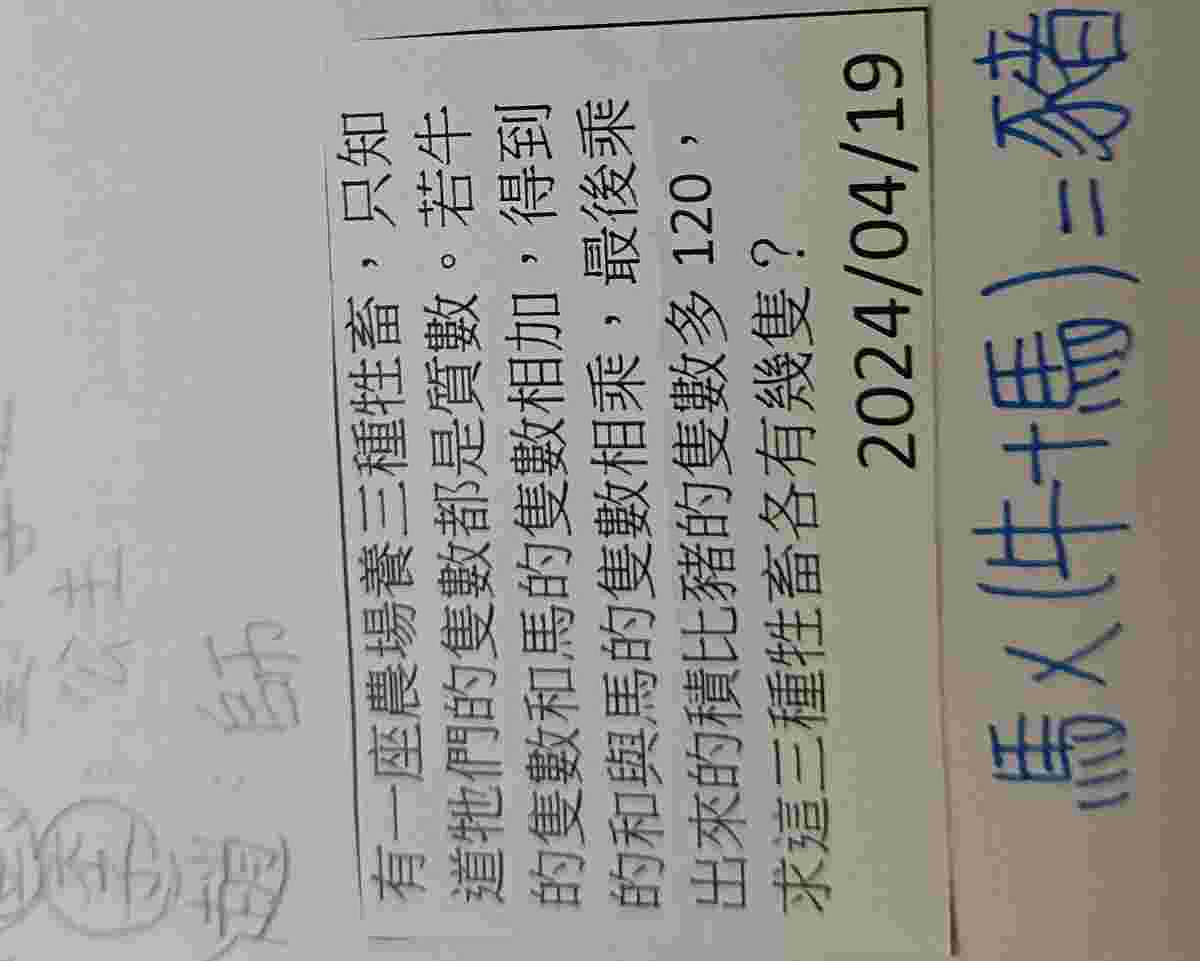 有一座農場養三種牲畜，只知
道牠們的隻數都是質數。若牛
的隻數和馬的隻數相加，得到
的和與馬的隻數相乘，最後乘
出來的積比豬的隻數多 120，
求這三種牲畜各有幾隻？
2024/04/19
馬×(牛+馬)=豬